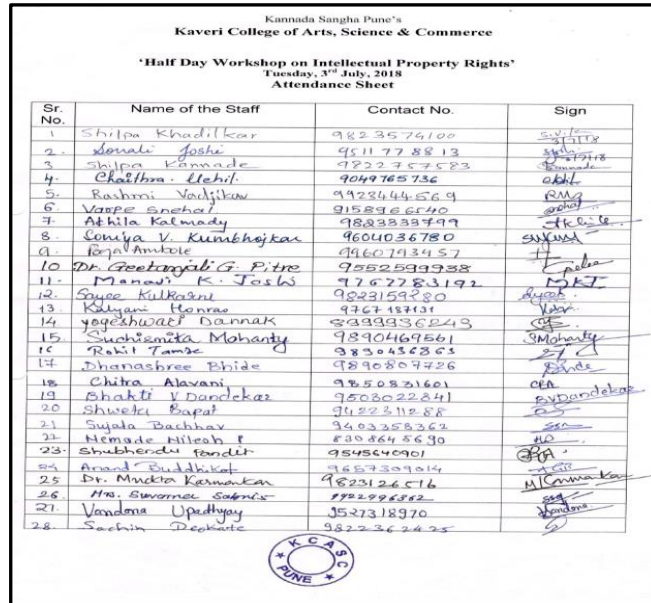 Kannada Sangha Pune's
Kaveri College of Arts, Science & Commerce
'Half Day Workshop on Intellectual Property Rights'
Tuesday, 3rd July, 2018
Attendance Sheet
Sr. No. Name of the Staff Contact No. Sign
1 Shilpa Khadilkar 9823574100 3/7/18
2. Sonali Joshi 9511778813
3 Shilpa Kannade 9822757583 Kannade
4. Chaithra 9049765736
5. Rashmi Vadjikar 9923444569
6. Varpe Snehal 9158966540 Snehal
7. Athila Kalmady 9823333799
8. Somiya V. Kumbhojkar 9604036780
9. Pooja Ambole 9960793457
10 Dr. Geetanjali G. Pitre 9552599938
11. Manavi K. Joshi 9767783192 MKJ
12. Sayee Kulkarni 9823159280
13. Kalyani Honrao 9767187131
14 Yogeshwari Dannak 8999936243
15. Suchismita Mohanty 9890469561 SMohanty
16 Rohit Tambe 9890436863
17 Dhanashree Bhide 9890807726 Bhide
18 Chitra Alavani 9850831601 CRA
19 Bhakti V Dandekar 9503022841 BVDandekar
20 Shweta Bapat 9422311288
21 Sujata Bachhav 9403358362
22 Nemade Nilesh P 8308645690
23. Shubhendu Pandit 9545640901
24 Anand Buddhikot 9657309014
25 Dr. Mukta Karmarkar 9823126516 M Karmarkar
26. Mrs. Suvarna Sabnis 9922996362
27. Vandana Upadhyay 9527318970 Vandana
28. Sachin Deokate 9822362425
KCASC
PUNE